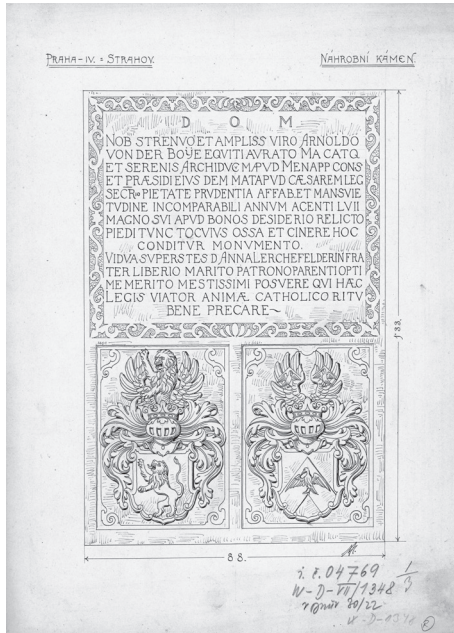 PRAHA-IV. = STRAHOV.
NÁHROBNÍ KÁMEN.
D O M
NOB STRENVO ET AMPLISS VIRO ARNOLDO
VON DER BOŸE EQVITI AVRATO MA CATQ
ET SERENIS ARCHIDVC MAPVD MENAPP CONS
ET PRÆSIDI EIVS DEM MATAPVD CÆSAREM LEG
SECR PIETATE PRVDENTIA AFFAB.ET MANSVIE
TVDINE INCOMPARABILI ANNVM AGENTI LVII
MAGNO SVI APVD BONOS DESIDERIO RELICTO
PIEDI TVNC TQCVIVS OSSA ET CINERE HOC
CONDITVR MONVMENTO.
VIDVA SVPERSTES D. ANNA LERCHEFELDERIN FRA
TER LIBERIO MARITO PATRONO PARENTI OPTI
ME MERITO MESTISSIMI POSVERE QVI HÆC
LEGIS VIATOR ANIMÆ CATHOLICO RITV
BENE PRECARE~
88.
i. č. 04769
IV-D-VII/1348
30/22
IV-D-1348